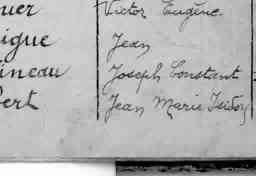 uer Victor Eugène
igue Jean
ineau Joseph Constant
bert Jean Marie Isidor